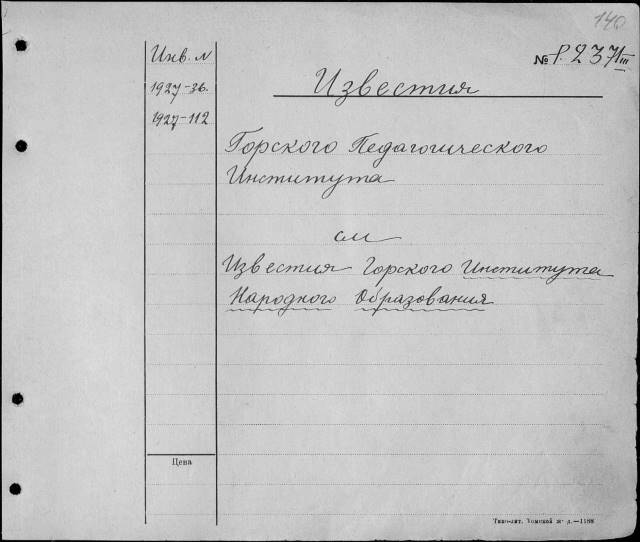 140
№ Р. 237 III
Инв. N
1927-36.
1927-112
Известия
Горского Педагогического
Института
см
Известия Горского Института
Народного Образования
Цена
Типо-лит. Томской ж д.—1188